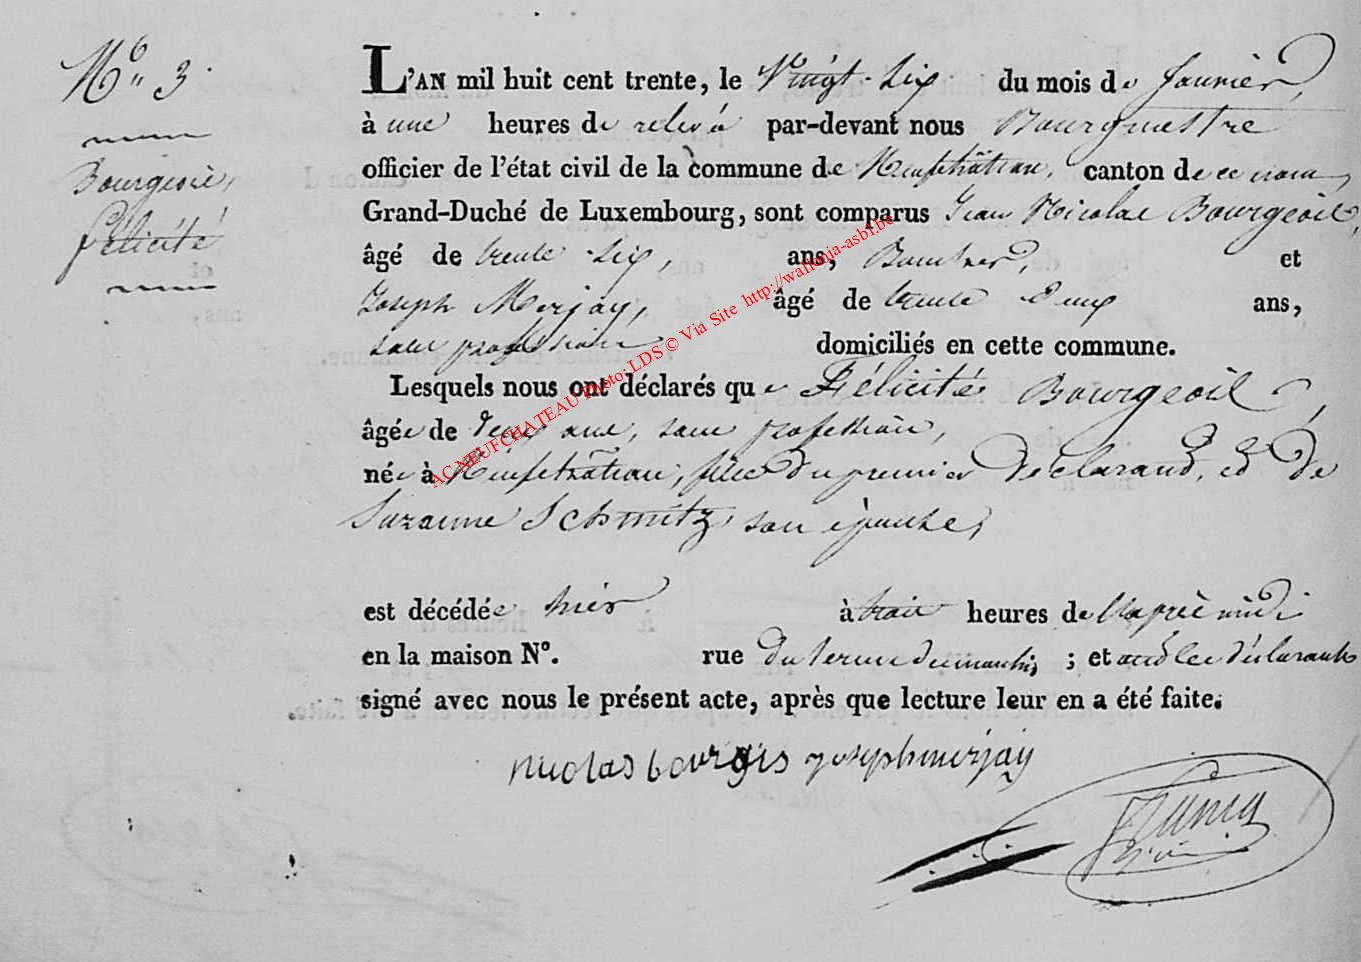 N° 3.
Bourgeois,
Félicité
L'AN mil huit cent trente, le Vingt-six du mois de Janvier,
à une heures de relevée par-devant nous Bourgmestre
officier de l'état civil de la commune de Neufchâteau, canton de ce nom,
Grand-Duché de Luxembourg, sont comparus Jean Nicolas Bourgeois,
âgé de trente six, ans, et
Joseph Merjay, âgé de trente deux ans,
sans profession domiciliés en cette commune.
Lesquels nous ont déclarés que Félicité Bourgeois,
âgée de deux ans, sans profession,
née à Neufchâteau, fille du premier déclarand, et de
Suzanne Schmitz, son épouse,
est décédée hier à trois heures de l'après midi
en la maison N°. rue du ; et ont les déclarants
signé avec nous le présent acte, après que lecture leur en a été faite.
nicolas bourgois joseph merjay
AC NEUFCHATEAU Photo: LDS © Via Site http://wallonia-asbl.be